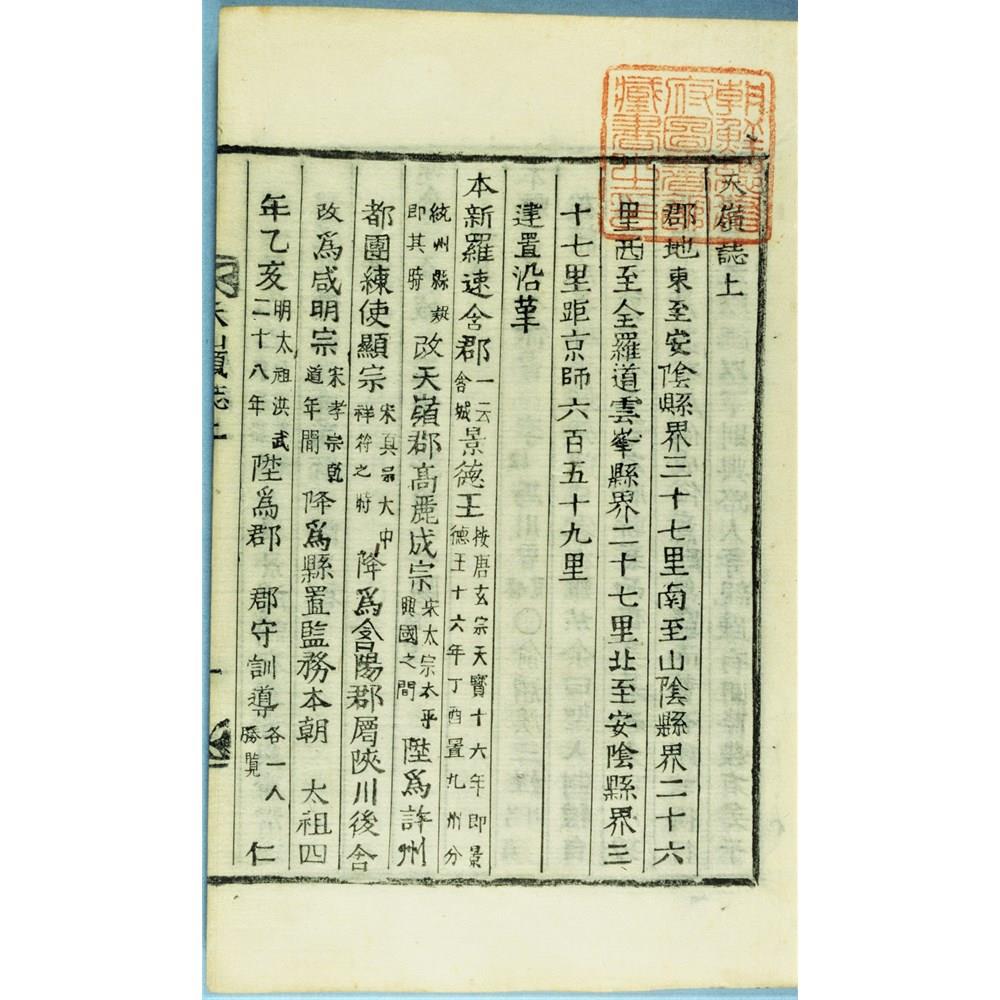 朝鮮總督
府圖書館
藏書之印
天嶺誌上
郡地東至安陰縣界三十七里南至山陰縣界二十六
里西至全羅道雲峯縣界二十七里北至安陰縣界三
十七里距京師六百五十九里
建置沿革
本新羅速含郡一云含城景德王按唐玄宗天寶十六年即景德王十六年丁酉置九州分
統州縣疑即其時改天嶺郡高麗成宗宋太宗太平興國之間陞爲許州
都團練使顯宗宋真宗大中祥符之時降爲含陽郡屬陜川後含
改爲咸明宗宋孝宗乾道年間降爲縣置監務本朝 太祖四
年乙亥明太祖洪武二十八年陞爲郡 郡守訓導各一人勝覽 仁
天嶺誌上
一